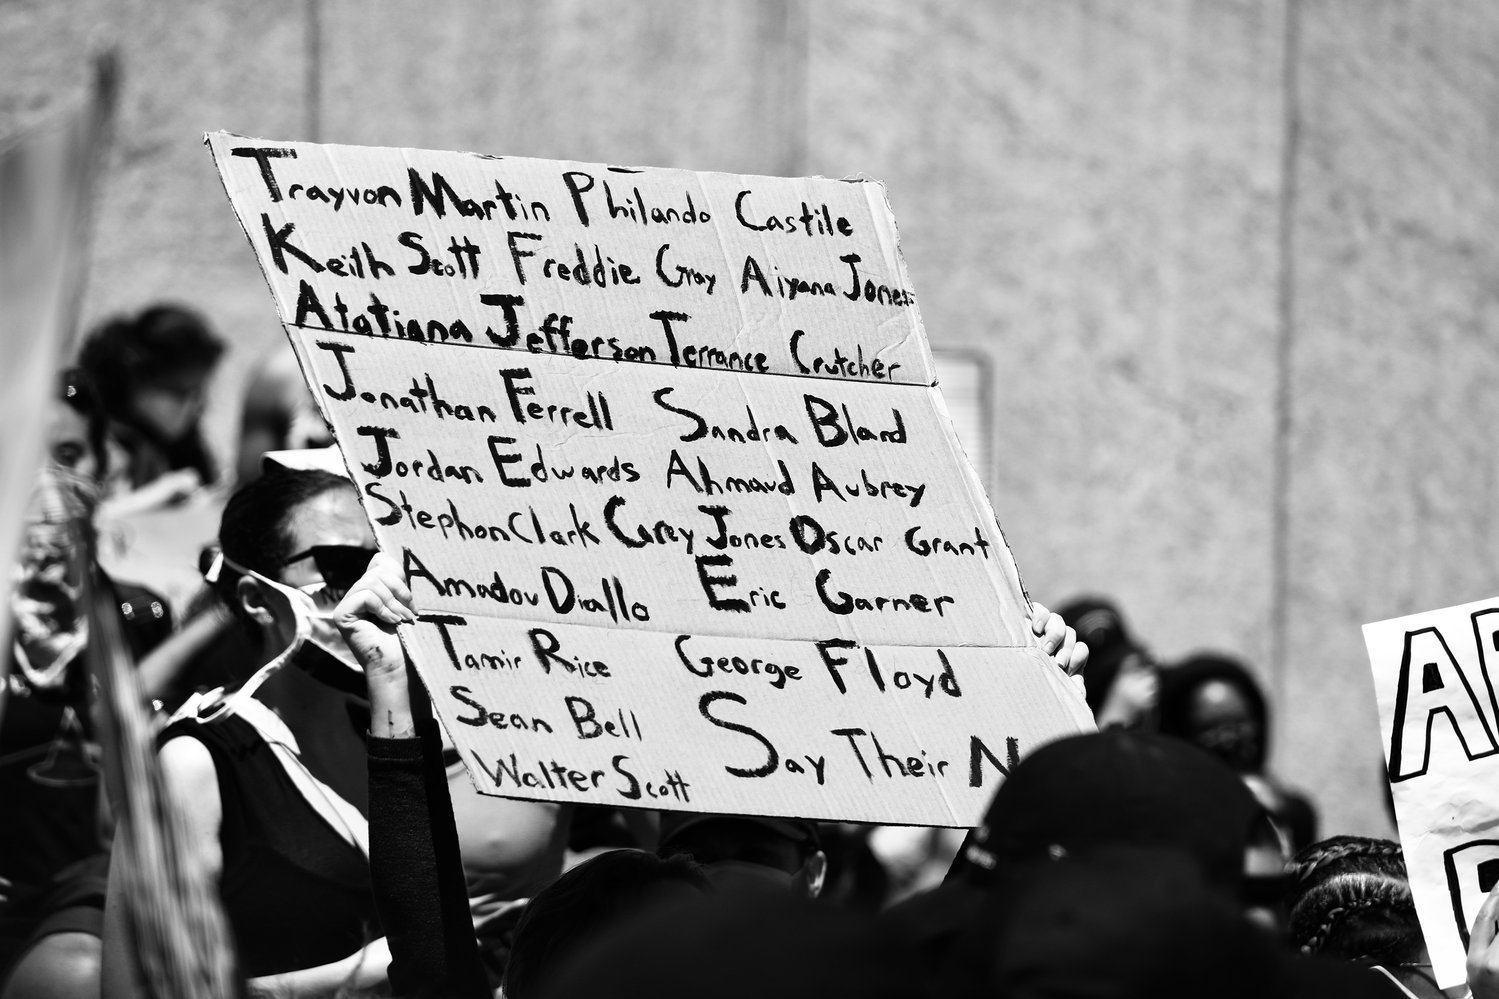 Trayvon Martin Philando Castile
Keith Scott Freddie Gray Aiyana Jones
Atatiana Jefferson Terrance Crutcher
Jonathan Ferrell Sandra Bland
Jordan Edwards Ahmaud Aubrey
Stephon Clark Corey Jones Oscar Grant
Amadou Diallo Eric Garner
Tamir Rice George Floyd
Sean Bell
Walter Scott Say Their N